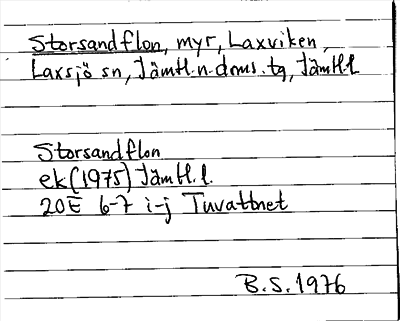 Storsandflon, myr, Laxviken,
Laxsjö sn, Jämtl.n.doms.tg, Jämtl.l
Storsandflon
ek (1975) Jämtl.l.
20E 6-7 i-j Tuvattnet
B.S. 1976